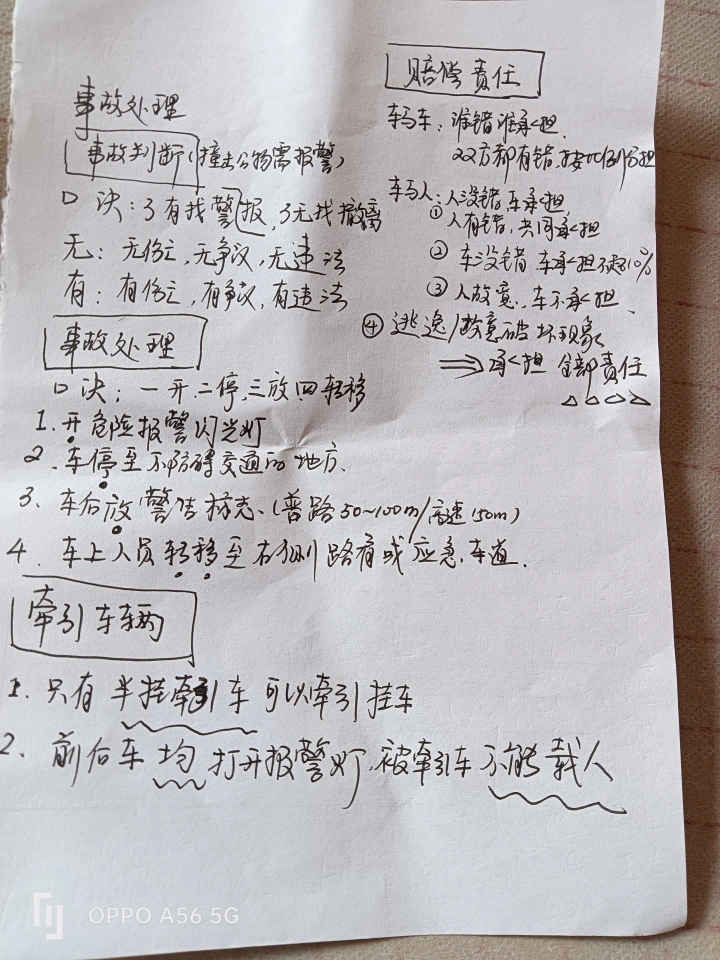 事故处理
事故判断(撞击公物需报警)
口决:3有找警报,3无找撤离
无:无伤亡,无争议,无违法
有:有伤亡,有争议,有违法
事故处理
口决:一开,二停,三放,四转移
1.开危险报警闪光灯
2.车停至不防碍交通的地方.
3、车后放警告标志、(普路50~100m/高速150m)
4、车上人员转移至右侧路肩或应急车道.
牵引车辆
1.只有半挂牵引车可以牵引挂车
2、前后车均打开报警灯,被牵引车不能载人
赔偿责任
车与车:谁错谁承担.
双方都有错,按比例分担
车与人:人没错车承担
① 人有错,共同承担
② 车没错 车承担不超10%
③ 人故意,车不承担.
④ 逃逸/故意破坏现象
⇒承担 全部责任
OPPO A56 5G